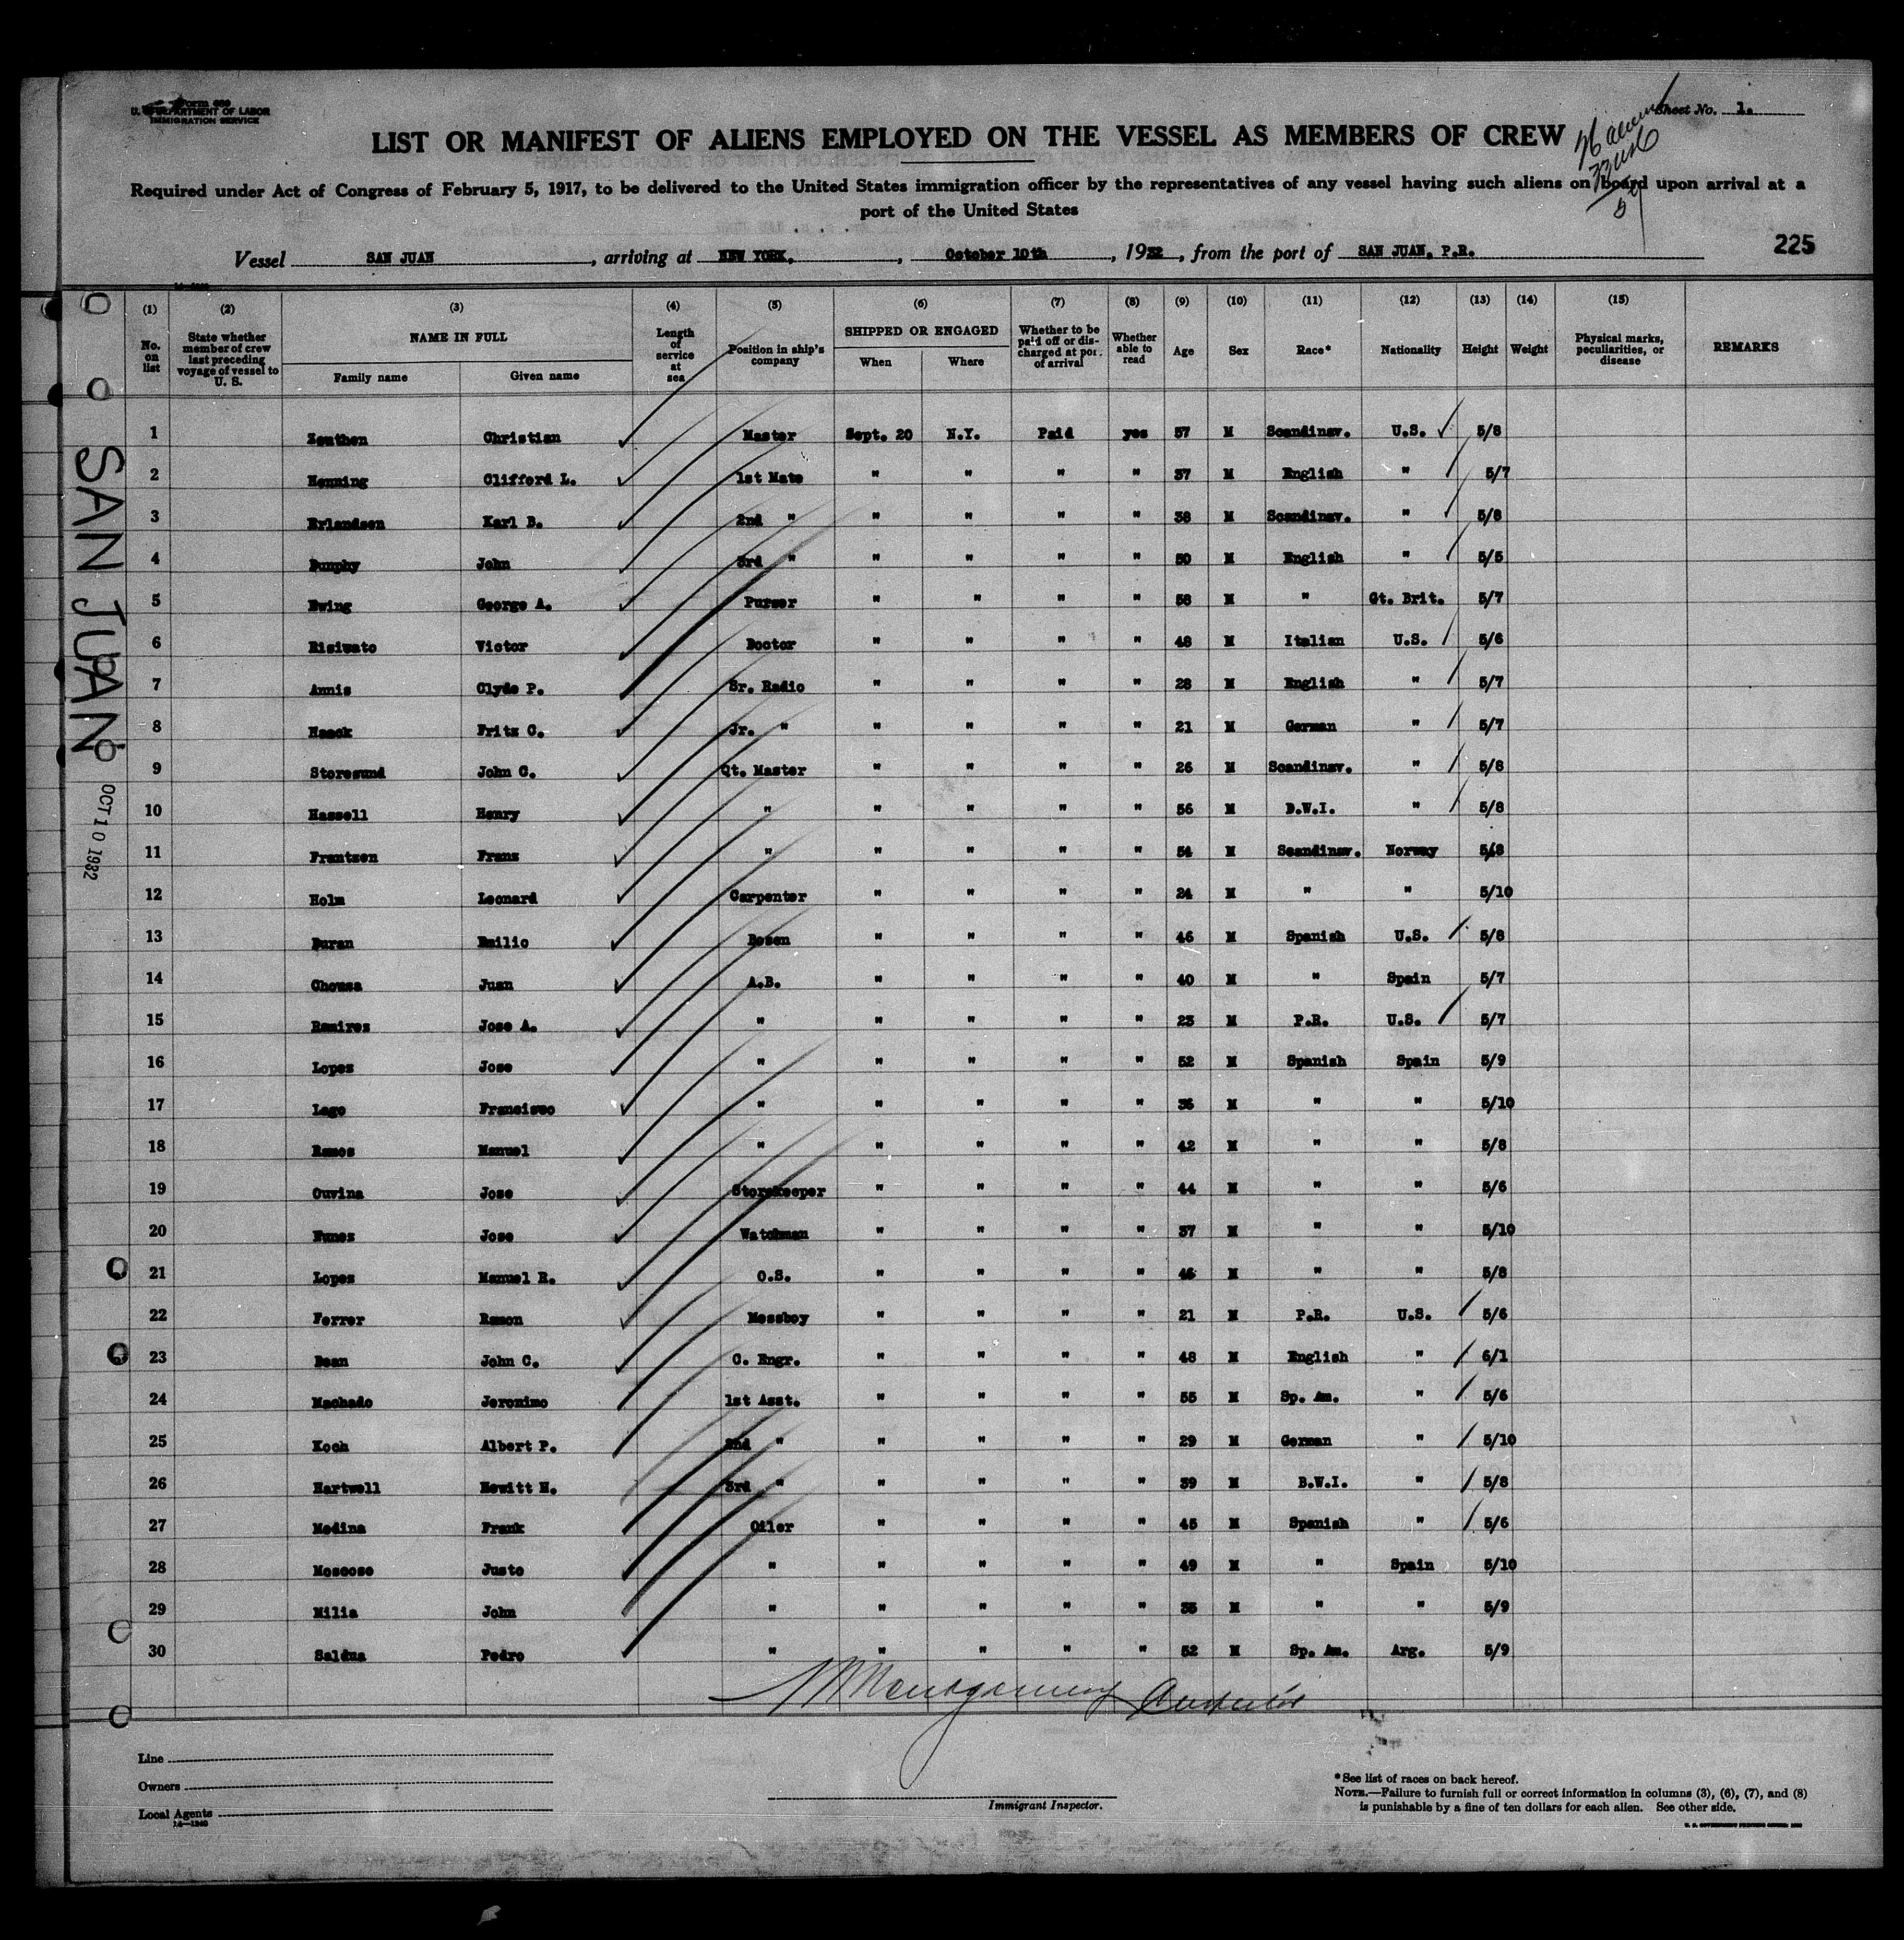 Form 689
U. S. DEPARTMENT OF LABOR
IMMIGRATION SERVICE
Sheet No. 1.
LIST OR MANIFEST OF ALIENS EMPLOYED ON THE VESSEL AS MEMBERS OF CREW
Required under Act of Congress of February 5, 1917, to be delivered to the United States immigration officer by the representatives of any vessel having such aliens on board upon arrival at a
port of the United States
Vessel SAN JUAN, arriving at NEW YORK, October 10th, 1932, from the port of SAN JUAN, P.R.
225
(1) (2) (3) (4) (5) (6) (7) (8) (9) (10) (11) (12) (13) (14) (15)
No. on list State whether member of crew last preceding voyage of vessel to U. S. NAME IN FULL Family name Given name Length of service at sea Position in ship's company SHIPPED OR ENGAGED When Where Whether to be paid off or discharged at port of arrival Whether able to read Age Sex Race* Nationality Height Weight Physical marks, peculiarities, or disease REMARKS
1 Zeuthen Christian Master Sept. 20 N.Y. Paid yes 57 M Scandinav. U.S. 5/8
2 Henning Clifford L. 1st Mate " " " " 37 M English " 5/7
3 Erlandsen Karl B. 2nd " " " " " 38 M Scandinav. " 5/8
4 Dunphy John 3rd " " " " " 50 M English " 5/5
5 Ewing George A. Purser " " " " 58 M " Gt. Brit. 5/7
6 Risivato Victor Doctor " " " " 48 M Italian U.S. 5/6
7 Annis Clyde P. Sr. Radio " " " " 28 M English " 5/7
8 Haack Fritz C. Jr. " " " " " 21 M German " 5/7
9 Storesund John G. Qt. Master " " " " 26 M Scandinav. " 5/8
10 Hassell Henry " " " " " 56 M B.W.I. " 5/8
11 Frantzen Franz " " " " " 54 M Scandinav. Norway 5/8
12 Holm Leonard Carpenter " " " " 24 M " " 5/10
13 Duran Emilio Bosen " " " " 46 M Spanish U.S. 5/8
14 Chousa Juan A.B. " " " " 40 M " Spain 5/7
15 Ramirez Jose A. " " " " " 23 M P.R. U.S. 5/7
16 Lopez Jose " " " " " 52 M Spanish Spain 5/9
17 Lago Francisco " " " " " 36 M " " 5/10
18 Ramos Manuel " " " " " 42 M " " 5/8
19 Ouvina Jose Storekeeper " " " " 44 M " " 5/6
20 Nunez Jose Watchman " " " " 37 M " " 5/10
21 Lopez Manuel R. O.S. " " " " 46 M " " 5/8
22 Ferrer Ramon Messboy " " " " 21 M P.R. U.S. 5/6
23 Dean John C. C. Engr. " " " " 48 M English " 6/1
24 Machado Jeronimo 1st Asst. " " " " 55 M Sp. Am. " 5/6
25 Koch Albert P. 2nd " " " " " 29 M German " 5/10
26 Hartwell Hewitt H. 3rd " " " " " 39 M B.W.I. " 5/8
27 Medina Frank Oiler " " " " 45 M Spanish " 5/6
28 Moscoso Justo " " " " " 49 M " Spain 5/10
29 Milia John " " " " " 35 M " " 5/9
30 Saldua Pedro " " " " " 52 M Sp. Am. Arg. 5/9
SAN JUAN
OCT 10 1932
Montgomery
Line
Owners
Local Agents
14—1240
Immigrant Inspector.
*See list of races on back hereof.
NOTE.—Failure to furnish full or correct information in columns (3), (6), (7), and (8)
is punishable by a fine of ten dollars for each alien. See other side.